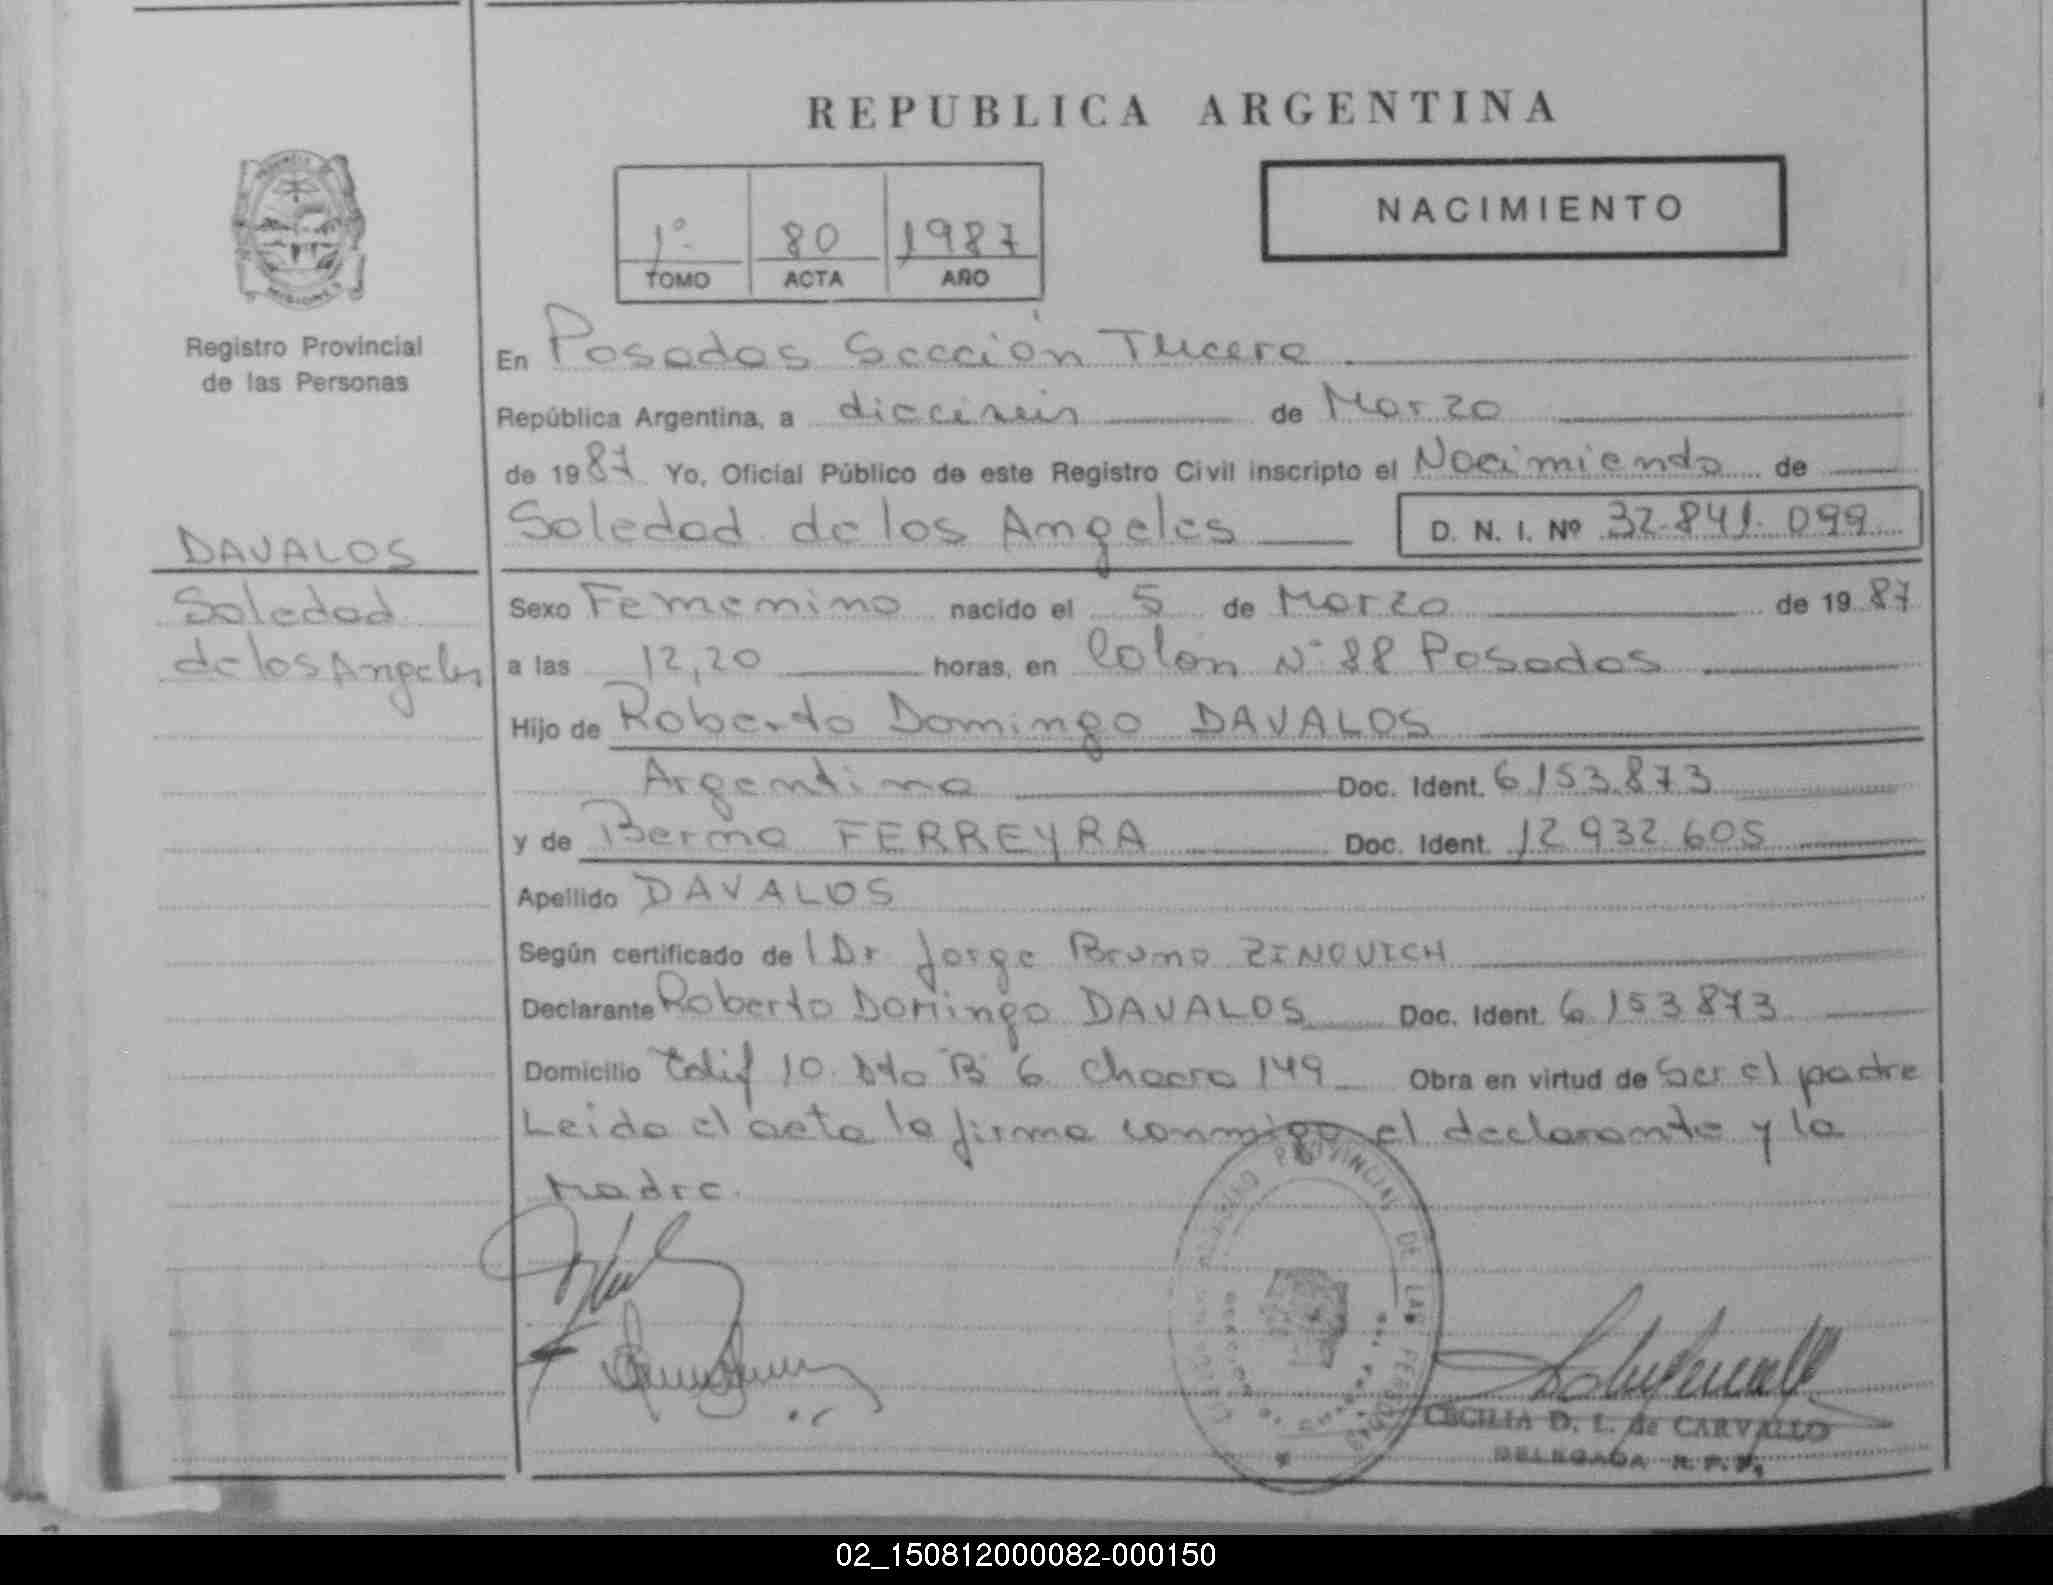 REPUBLICA ARGENTINA
1º 80 1987
TOMO ACTA AÑO
NACIMIENTO
MISIONES
Registro Provincial
de las Personas
DAVALOS
Soledad
de los Angeles
En Posadas Sección Tercera
República Argentina, a dieciseis de Marzo
de 1987 Yo, Oficial Público de este Registro Civil inscripto el Nacimiento de
Soledad de los Angeles D. N. I. Nº 32.841.099
Sexo Femenino nacido el 5 de Marzo de 1987
a las 12,20 horas, en Colón Nº 88 Posadas
Hijo de Roberto Domingo DAVALOS
Argentino Doc. Ident. 6.153.873
y de Berma FERREYRA Doc. Ident. 12 932 605
Apellido DAVALOS
Según certificado de l Dr Jorge Bruno ZINOVICH
Declarante Roberto Domingo DAVALOS Doc. Ident. 6 153 873
Domicilio Edif 10 Dto B 6 Chacra 149 Obra en virtud de ser el padre
Leida el acta la firma conmigo el declarante y la
Madre.
REGISTRO PROVINCIAL DE LAS PERSONAS
CECILIA D. L. de CARVALLO
DELEGADA R. P. P.
02_150812000082-000150